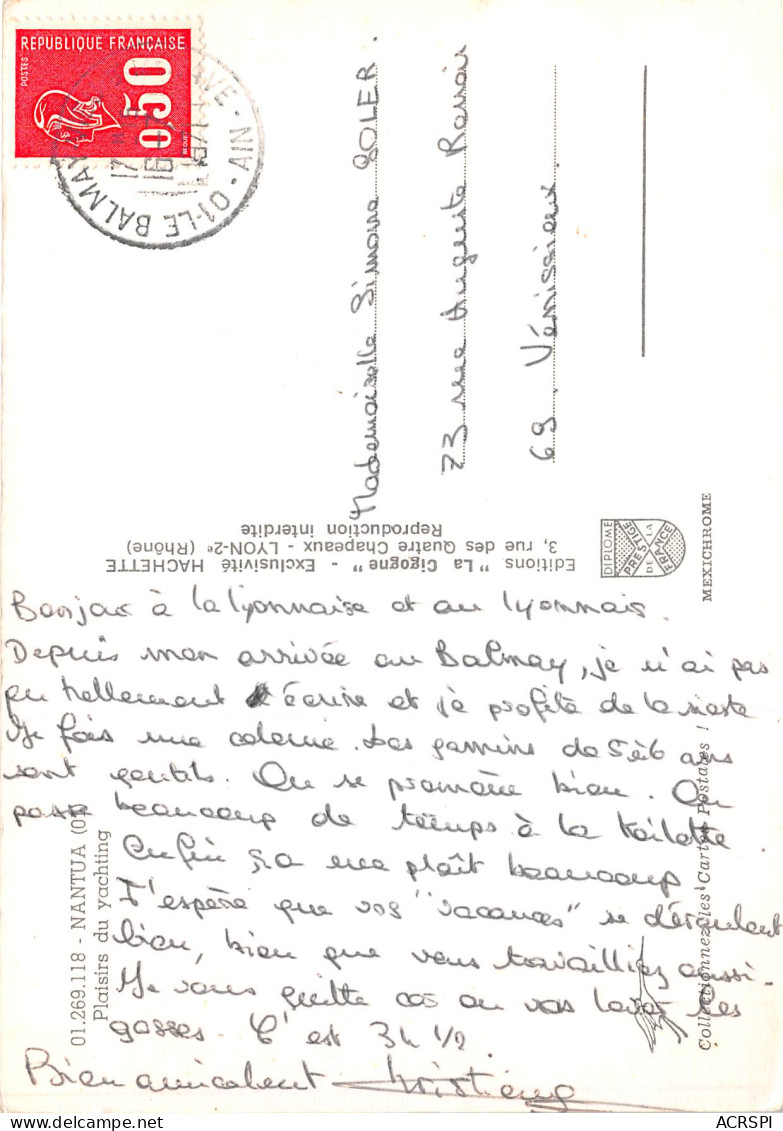 REPUBLIQUE FRANÇAISE
POSTES
0,50
01-LE BALMAY
AIN
Mademoiselle Simone SOLER.
73 rue Auguste Renoir
69. Vénissieux.
Editions "La Cigogne" - Exclusivité HACHETTE
3, rue des Quatre Chapeaux - LYON-2e (Rhône)
Reproduction interdite
DIPLOME
PRESTIGE
DE LA
FRANCE
MEXICHROME
Bonjour à la lyonnaise et au lyonnais.
Depuis mon arrivée au Balmay, je n'ai pas
pu tellement écrire et je profite de la sieste
Je fais une colonie. Les gamins de 5 à 6 ans
sont gentils. On se promène bien. On
passe beaucoup de temps à la toilette
Enfin ça me plaît beaucoup
J'espère que vos "vacances" se déroulent
bien, bien que vous travailliez aussi.
Je vous quitte car on va laver les
gosses. C'est 3h 1/2.
Bien amicalement Christiane
01.269.118 - NANTUA (01)
Plaisirs du yachting
Collectionnez les Cartes Postales !
ACRSPI